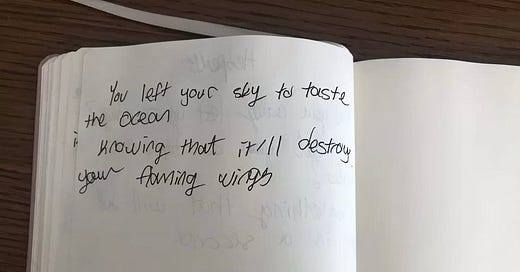 You left your sky to taste
the ocean
knowing that it'll destroy
your flaming wings